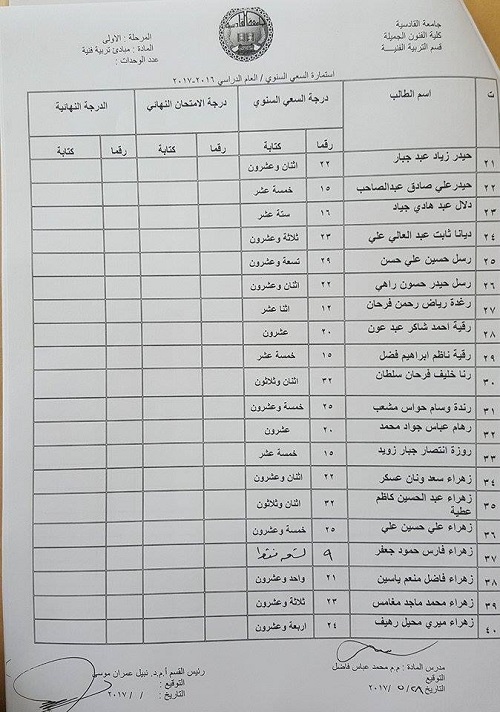 جامعة القادسية
كلية الفنون الجميلة
قسم التربية الفنيـــة
المرحلة : الاولى
المادة : مبادئ تربية فنية
عدد الوحدات :
استمارة السعي السنوي / العام الدراسي ٢٠١٦-٢٠١٧
ت اسم الطالب درجة السعي السنوي درجة الامتحان النهائي الدرجة النهائية
رقما كتابة رقما كتابة رقما كتابة
٢١ حيدر زياد عبد جبار ٢٢ اثنان وعشرون
٢٢ حيدرعلي صادق عبدالصاحب ١٥ خمسة عشر
٢٣ دلال عبد هادي جياد ١٦ ستة عشر
٢٤ ديانا ثابت عبد العالي علي ٢٣ ثلاثة وعشرون
٢٥ رسل حسين علي حسن ٢٩ تسعة وعشرون
٢٦ رسل حيدر حسون راهي ٢٢ اثنان وعشرون
٢٧ رغدة رياض رحمن فرحان ١٢ اثنا عشر
٢٨ رقية احمد شاكر عبد عون ٢٠ عشرون
٢٩ رقية ناظم ابراهيم فضل ١٥ خمسة عشر
٣٠ رنا خليف فرحان سلطان ٣٢ اثنان وثلاثون
٣١ رندة وسام حواس مشعب ٢٥ خمسة وعشرون
٣٢ رهام عباس جواد محمد ٢٠ عشرون
٣٣ روزة انتصار جبار زويد ١٥ خمسة عشر
٣٤ زهراء سعد ونان عسكر ٢٢ اثنان وعشرون
٣٥ زهراء عبد الحسين كاظم عطية ٣٢ اثنان وثلاثون
٣٦ زهراء علي حسين علي ٢٥ خمسة وعشرون
٣٧ زهراء فارس حمود جعفر ٩ تسعة فقط
٣٨ زهراء فاضل منعم ياسين ٢١ واحد وعشرون
٣٩ زهراء محمد ماجد مغامس ٢٣ ثلاثة وعشرون
٤٠ زهراء ميري محيل رهيف ٢٤ اربعة وعشرون
مدرس المادة : م.م محمد عباس فاضل
التوقيع
التاريخ ٢٠١٧/٥/٢٨
رئيس القسم أ.م.د. نبيل عمران موسى
التوقيع :
التاريخ : / / ٢٠١٧